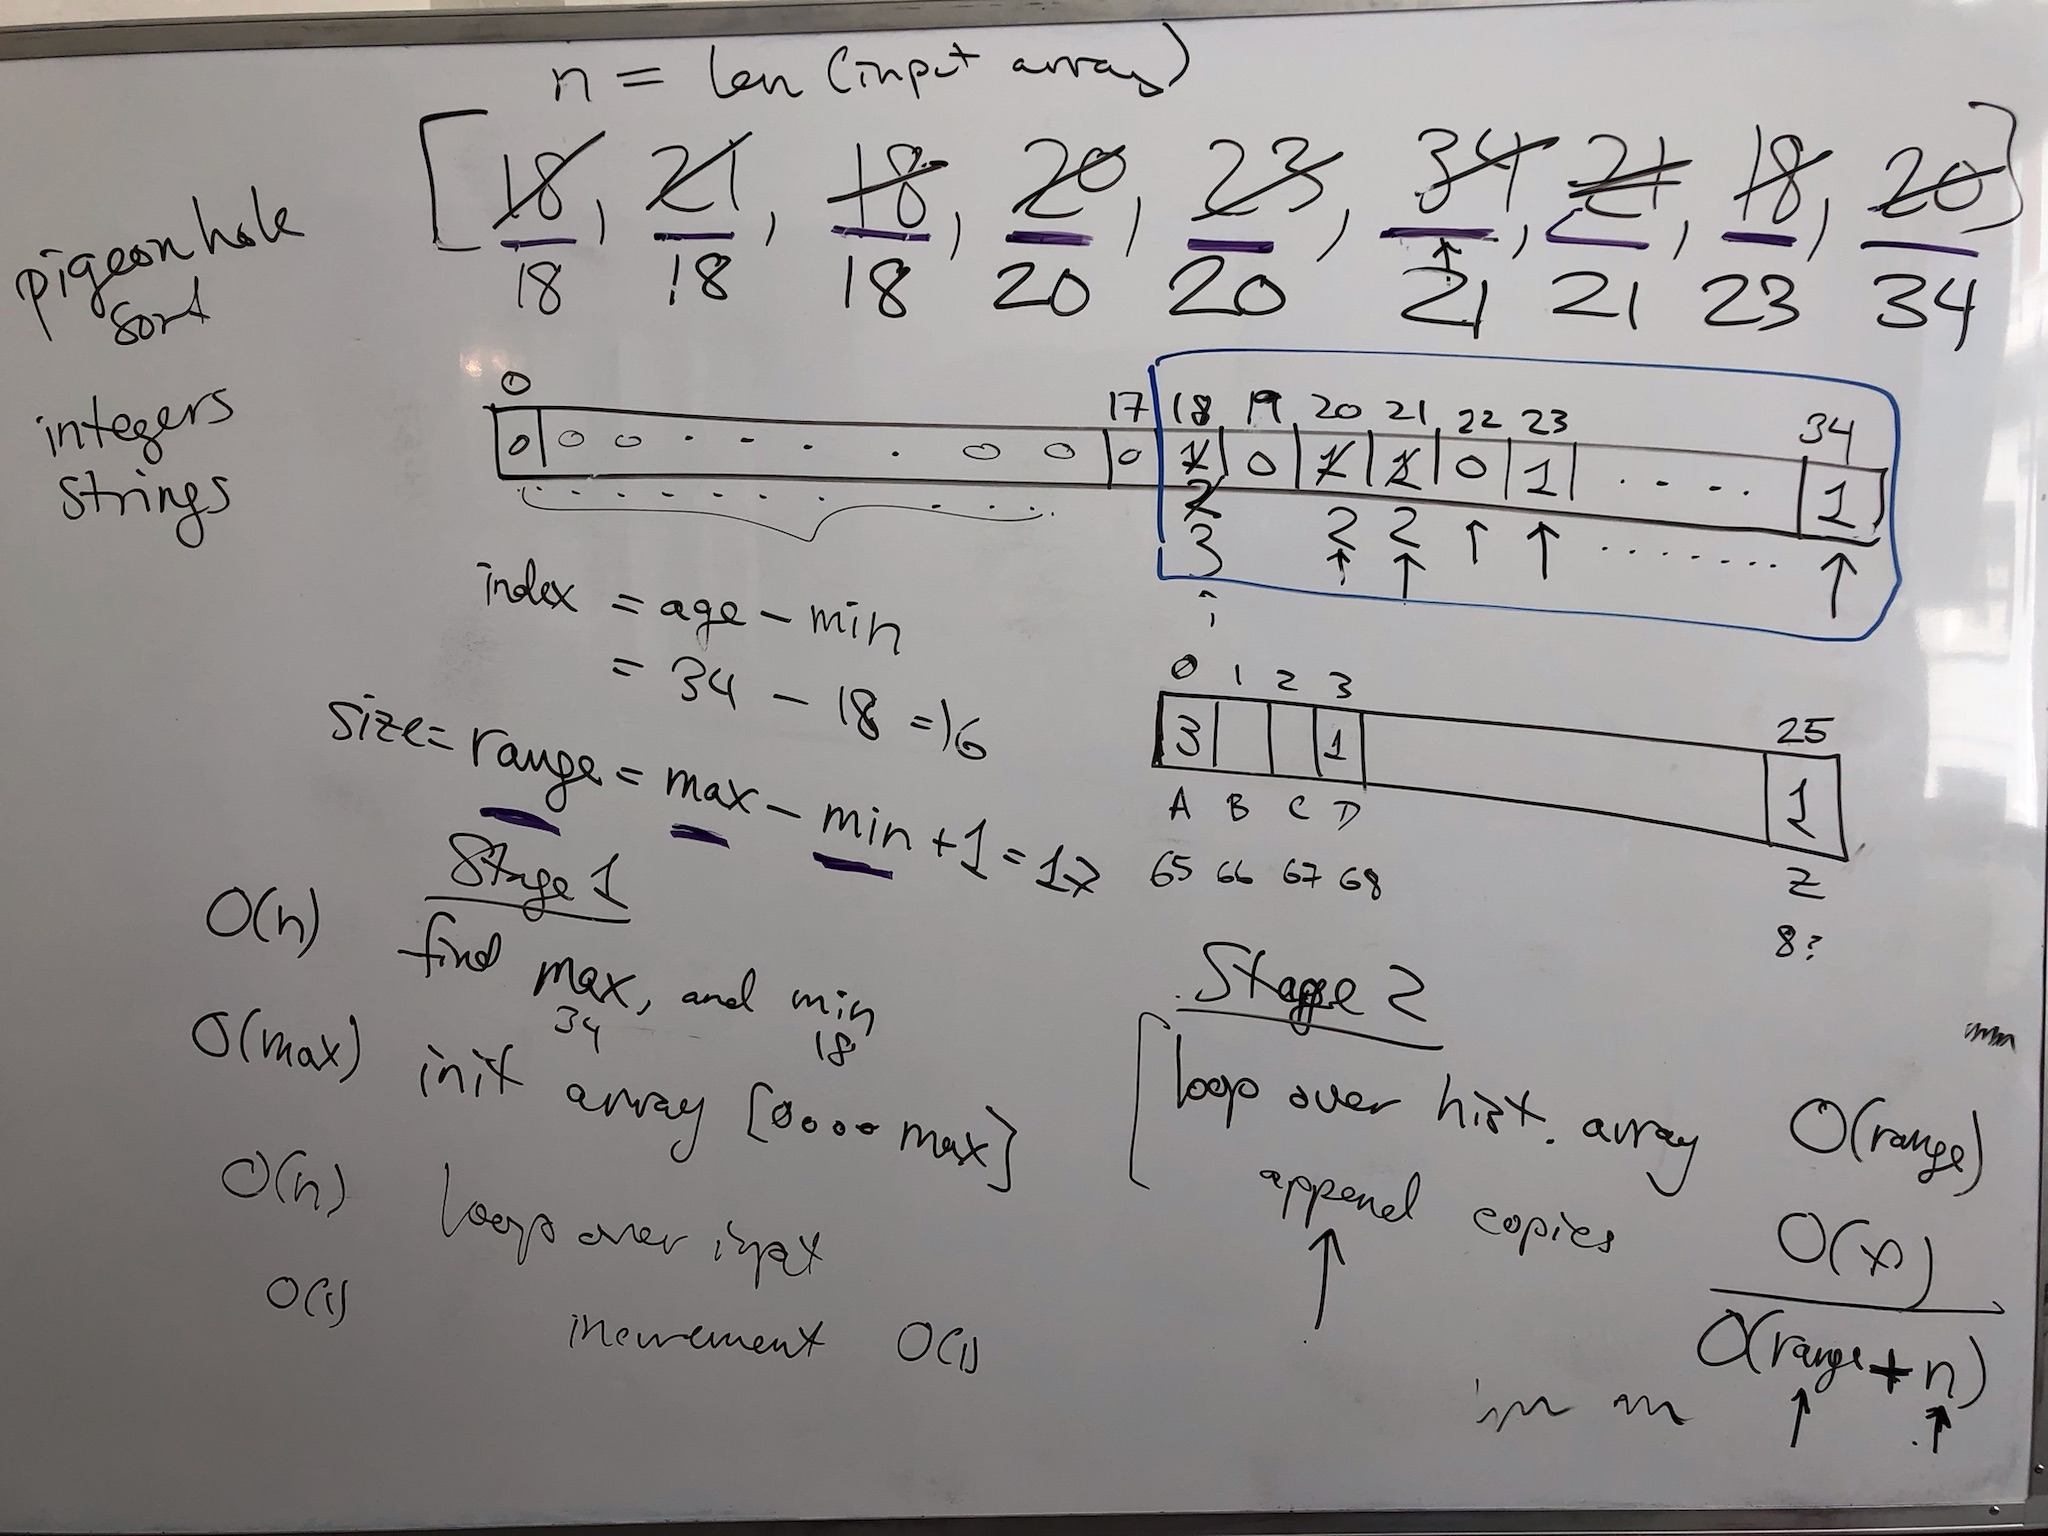 n = len (input array)
[18, 21, 18, 20, 23, 34, 21, 18, 20]
18 18 18 20 20 21 21 23 34
pigeonhole
sort
integers
strings
0 17 18 19 20 21 22 23 34
0 0 0 . . . . 0 0 0 1 0 1 1 0 1 . . . . 1
2 2 2
3
index = age - min
= 34 - 18 = 16
size = range = max - min + 1 = 17
0 1 2 3 25
3 1 1
A B C D Z
65 66 67 68 8?
Stage 1
O(n) find max, and min
34 18
O(max) init array [0000 max]
O(n) loop over input
O(1) increment O(1)
Stage 2
loop over hist. array O(range)
append copies
O(range + n)